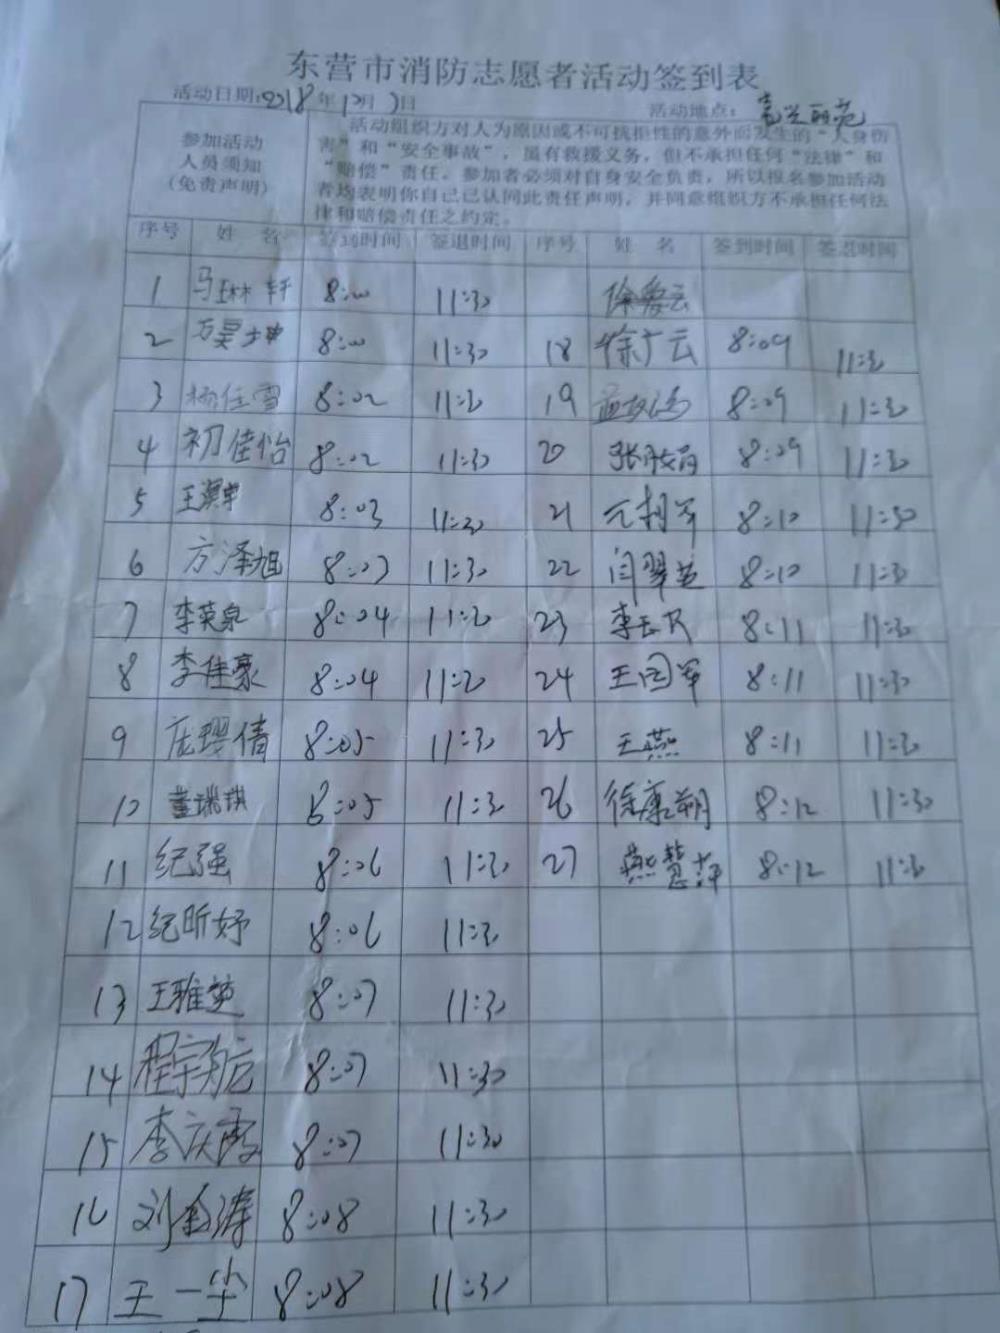 东营市消防志愿者活动签到表
活动日期:2018年12月2日 活动地点:
参加活动
人员须知
(免责声明)
活动组织方对人为原因或不可抗拒性的意外而发生的“人身伤
害”和“安全事故”，虽有救援义务，但不承担任何“法律”和
“赔偿”责任。参加者必须对自身安全负责，所以报名参加活动
者均表明你自己已认同此责任声明，并同意组织方不承担任何法
律和赔偿责任之约定。
序号 姓 名 签到时间 签退时间 序号 姓 名 签到时间 签退时间
1 马琳轩 8:00 11:30
2 万昊坤 8:00 11:30 18 徐广云 8:09 11:30
3 杨佳雪 8:02 11:30 19 8:09 11:30
4 初佳怡 8:02 11:30 20 8:09 11:30
5 王淇宇 8:03 11:30 21 元利军 8:10 11:30
6 方泽旭 8:03 11:30 22 闫翠英 8:10 11:30
7 李英泉 8:04 11:30 23 李长民 8:11 11:30
8 李佳豪 8:04 11:30 24 王国军 8:11 11:30
9 庞璎倩 8:05 11:30 25 王燕 8:11 11:30
10 董瑞琪 8:05 11:30 26 徐康朔 8:12 11:30
11 纪强 8:06 11:30 27 燕慧萍 8:12 11:30
12 纪昕妤 8:06 11:30
13 王雅楚 8:07 11:30
14 程宇航 8:07 11:30
15 李庆霞 8:07 11:30
16 刘金涛 8:08 11:30
17 王一尘 8:08 11:30